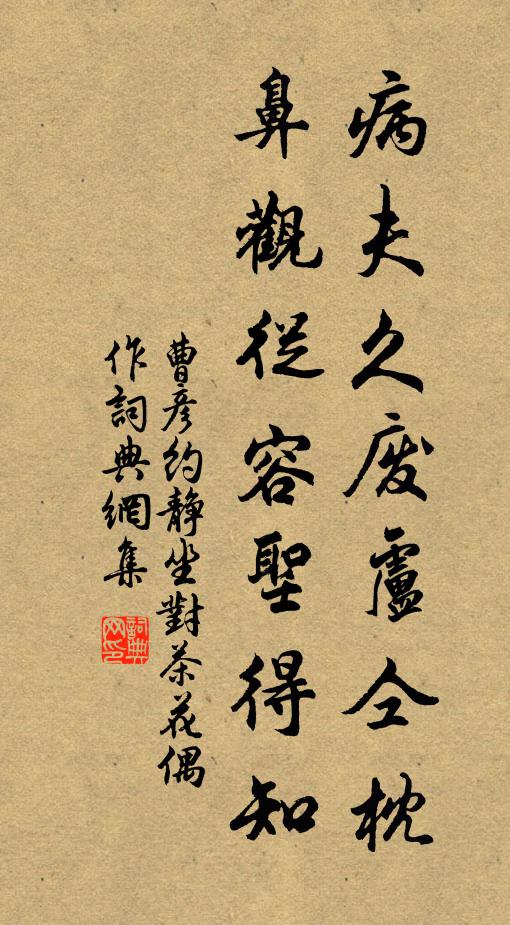 病夫久废盧仝枕
鼻觀從容聖得知
曹彦约靜坐對茶花偶
作詞典網集
詞典网印